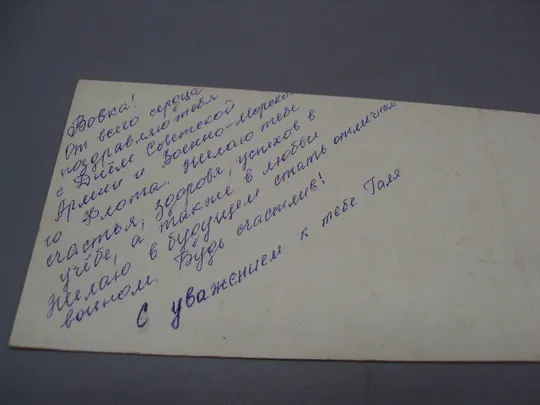 Вовка!
От всего сердца
поздравляю тебя
с Днём Советской
Армии и Военно-Морско-
го Флота. Желаю тебе
счастья, здоровя, успехов в
учёбе, а также в любви.
Желаю в будущем стать отличным
воином. Будь счастлив!
С уважением к тебе Галя